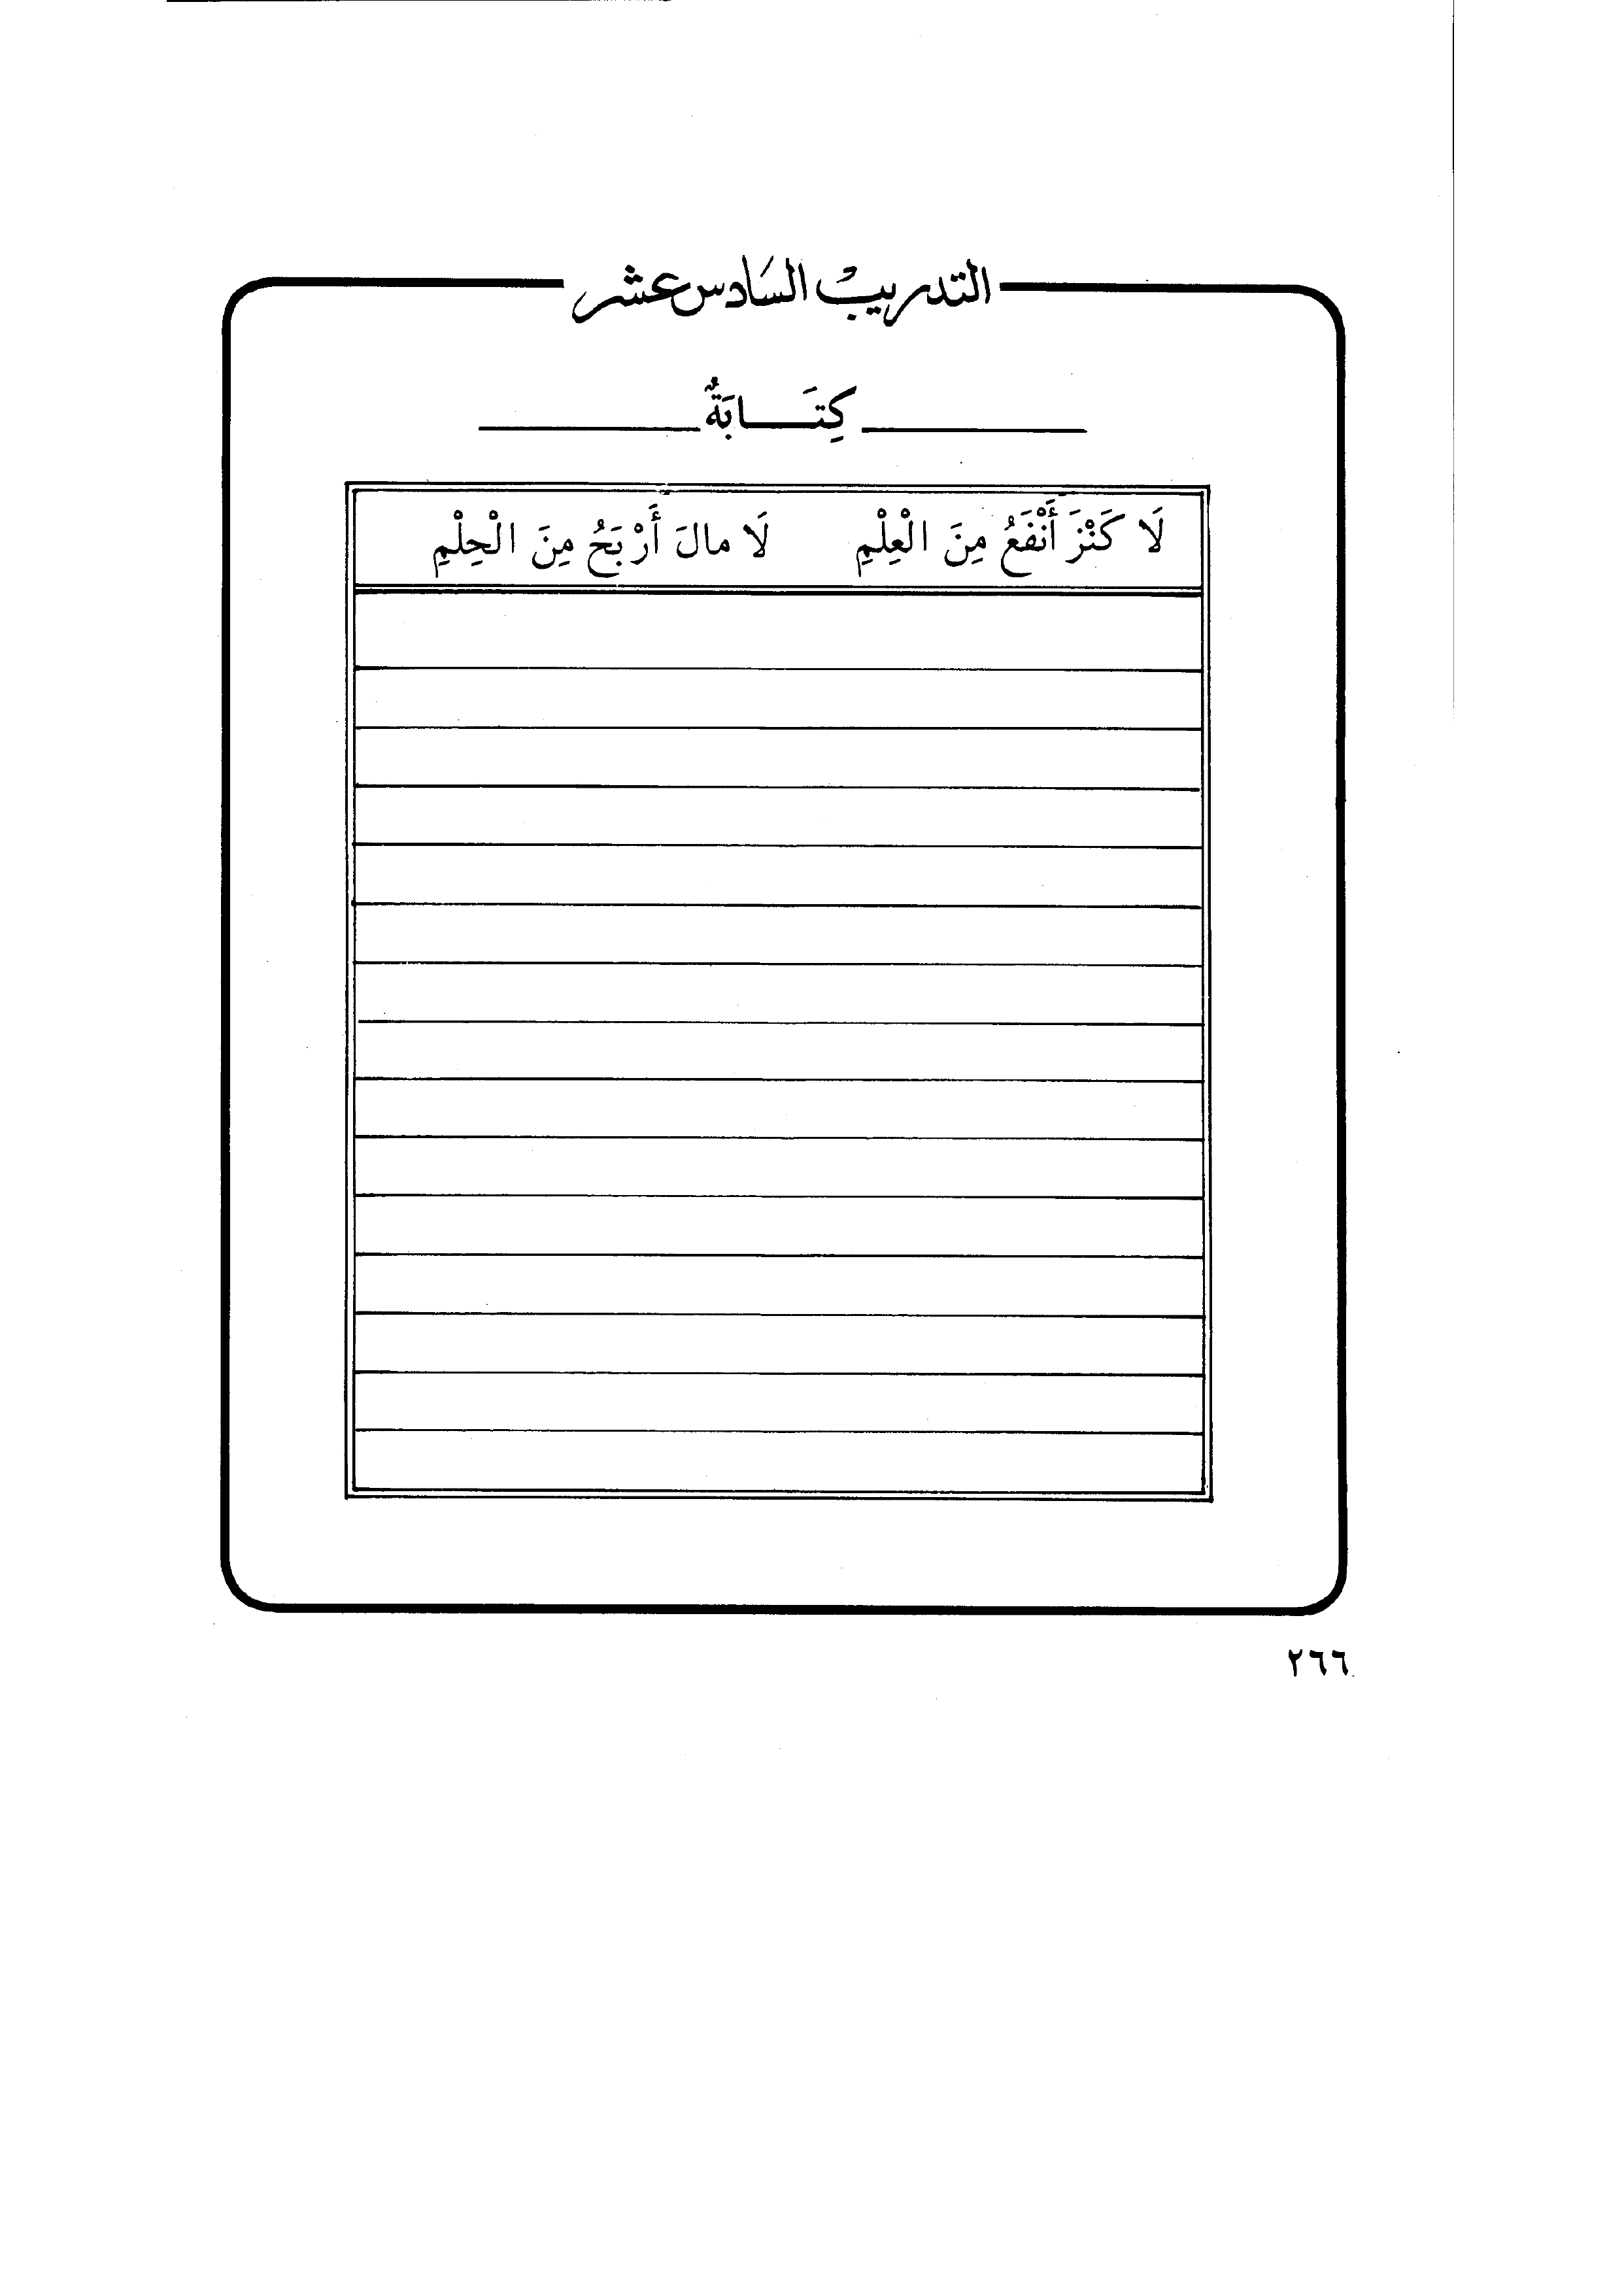 التدريب السادس عشر
كِتَـــابَةٌ
لَا كَنْزَ أَنْفَعُ مِنَ الْعِلْمِ لَا مالَ أَرْبَحُ مِنَ الْحِلْمِ
٢٦٦